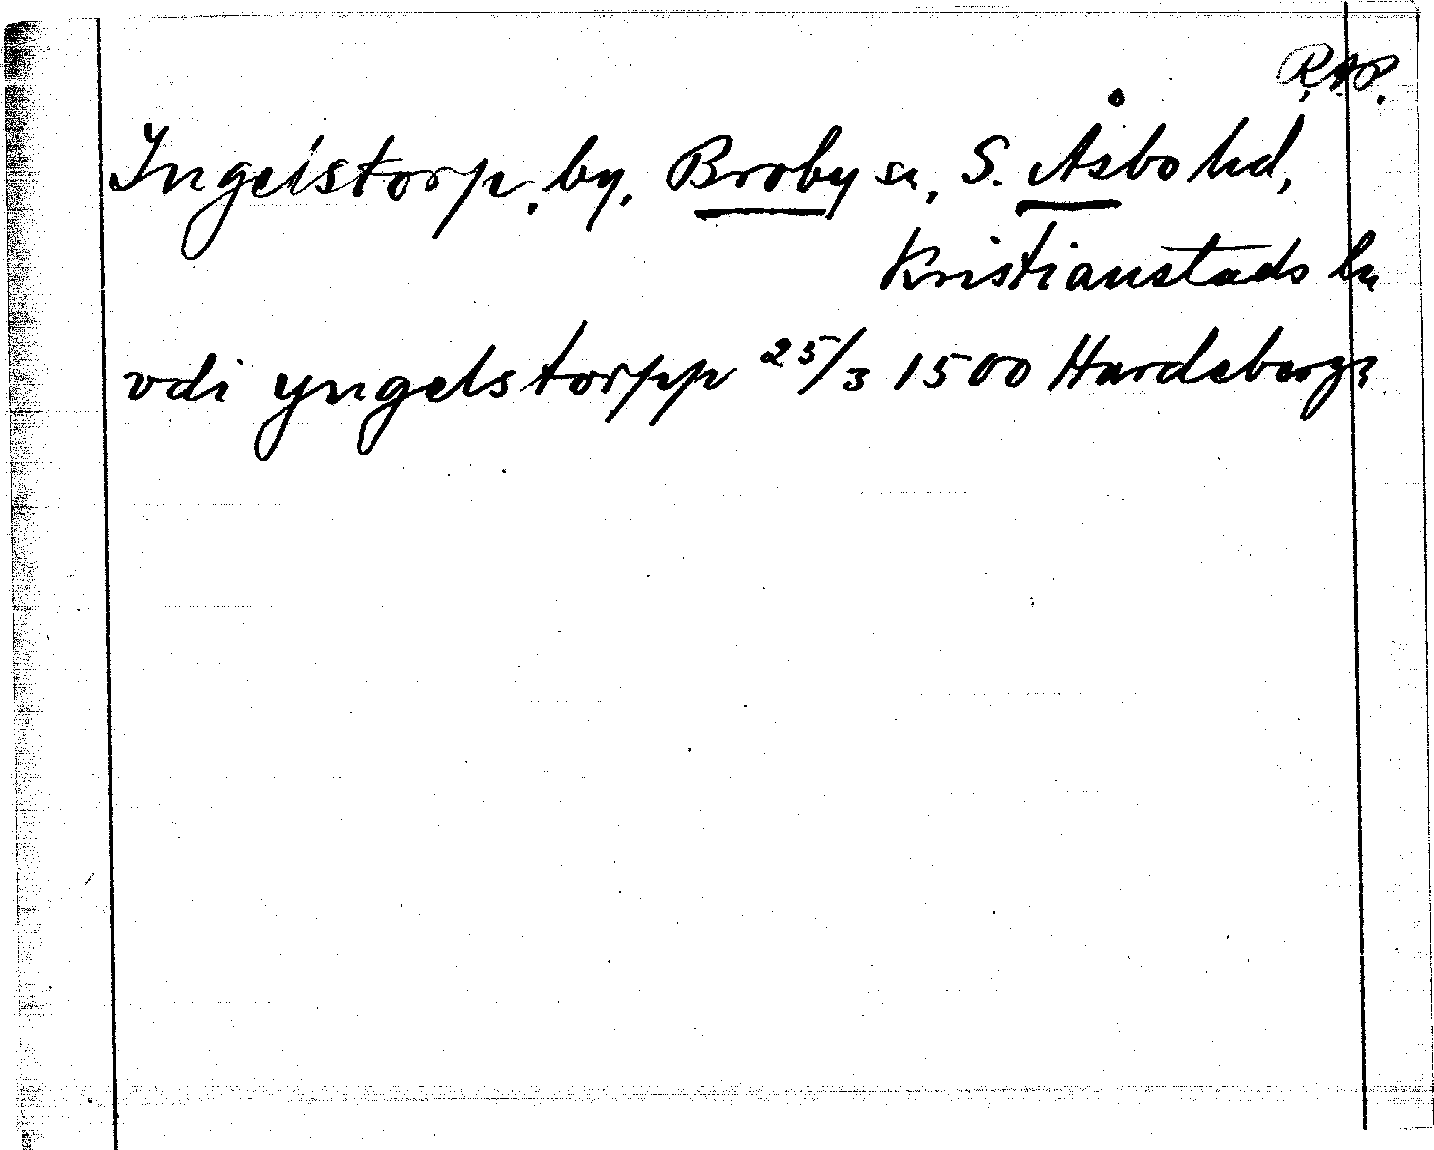 R.A.P.
Ingelstorp, by, Broby sn, S. Åsbo hd,
Kristianstads ln
vdi yngelstorpp 25/3 1500 Hardeberga